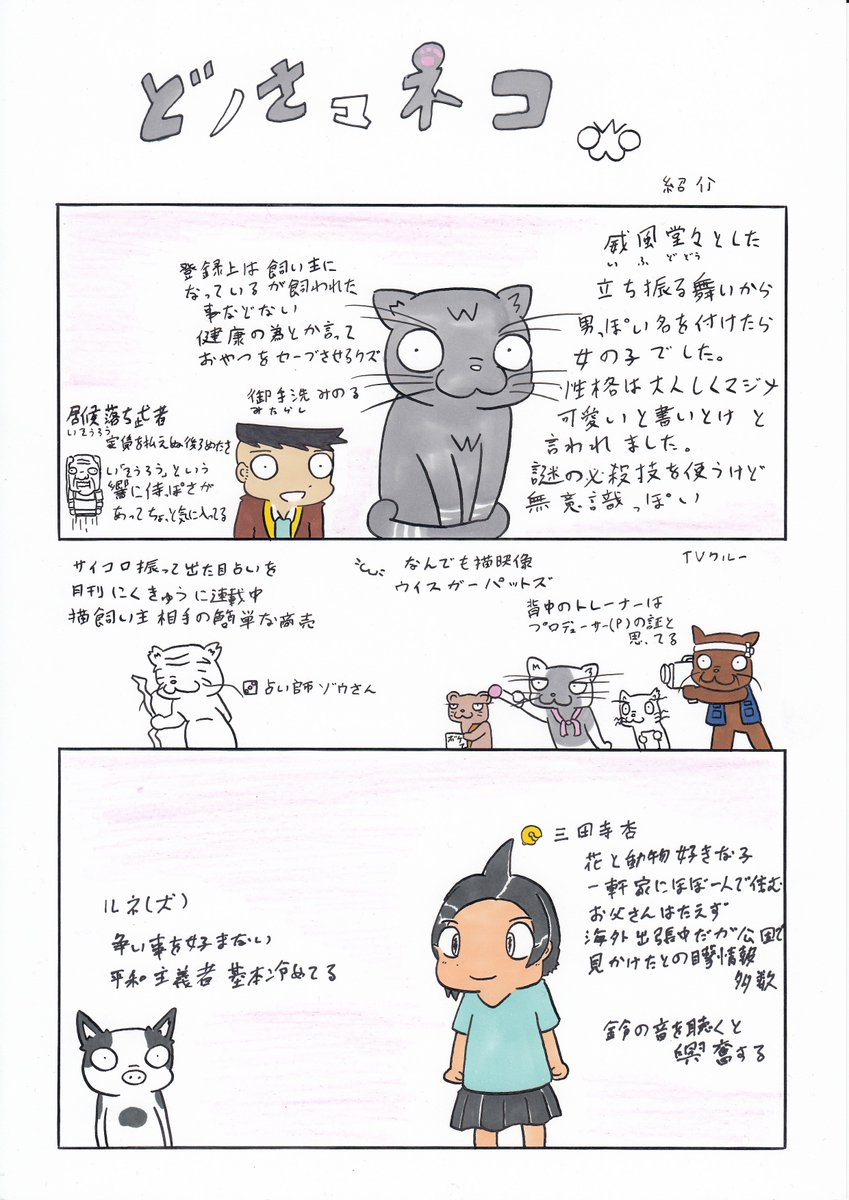 どノさマネコ
紹介
威風堂々とした
いふどどう
立ち振る舞いから
男っぽい名を付けたら
女の子でした。
性格は大人しくマジメ
可愛いと書いとけ と
言われました。
謎の必殺技を使うけど
無意識っぽい
登録上は飼い主に
なっているが飼われた
事などない
健康の為とか言って
おやつをセーブさせるクズ
御手洗みのる
みたらし
居候落ち武者
いそうろう
家賃を払えぬ後ろめたさ
い「そうろう」という
響に侍っぽさが
あってちょっと気に入ってる
サイコロ振って出た目占いを
月刊にくきゅうに連載中
猫飼い主相手の簡単な商売
占い師ゾウさん
なんでも猫映像
ウイスガーパットズ
TVクルー
背中のトレーナーは
プロデューサー(P)の証と
思ってる
ボケ
三田寺杏
花と動物好きな子
一軒家にほぼ一人で住む
お父さんはたえず
海外出張中だが公園で
見かけたとの目撃情報
多数
鈴の音を聴くと
興奮する
ルネ(犬)
争い事を好まない
平和主義者 基本冷めてる